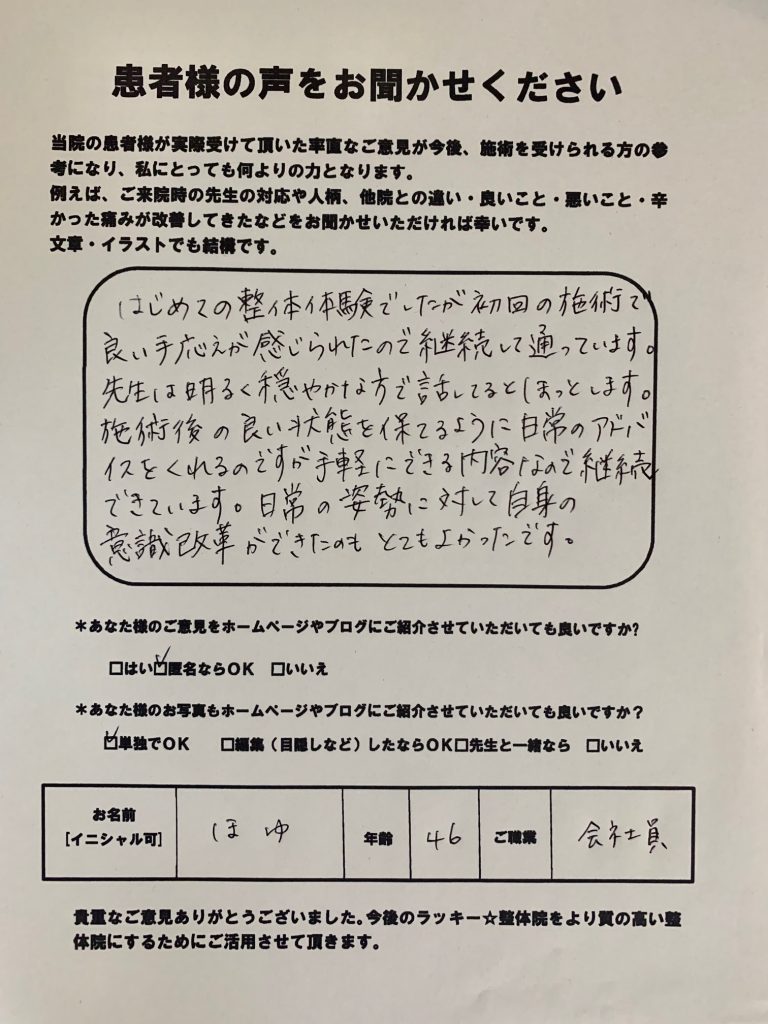 患者様の声をお聞かせください
当院の患者様が実際受けて頂いた率直なご意見が今後、施術を受けられる方の参
考になり、私にとっても何よりの力となります。
例えば、ご来院時の先生の対応や人柄、他院との違い・良いこと・悪いこと・辛
かった痛みが改善してきたなどをお聞かせいただければ幸いです。
文章・イラストでも結構です。
はじめての整体体験でしたが初回の施術で
良い手応えが感じられたので継続して通っています。
先生は明るく穏やかな方で話してるとほっとします。
施術後の良い状態を保てるように日常のアドバ
イスをくれるのですが手軽にできる内容なので継続
できています。日常の姿勢に対して自身の
意識改革ができたのもとてもよかったです。
＊あなた様のご意見をホームページやブログにご紹介させていただいても良いですか?
□はい☑匿名ならOK □いいえ
＊あなた様のお写真もホームページやブログにご紹介させていただいても良いですか？
☑単独でOK □編集（目隠しなど）したならOK□先生と一緒なら □いいえ
お名前
[イニシャル可]
ほゆ
年齢
46
ご職業
会社員
貴重なご意見ありがとうございました。今後のラッキー☆整体院をより質の高い整
体院にするためにご活用させて頂きます。